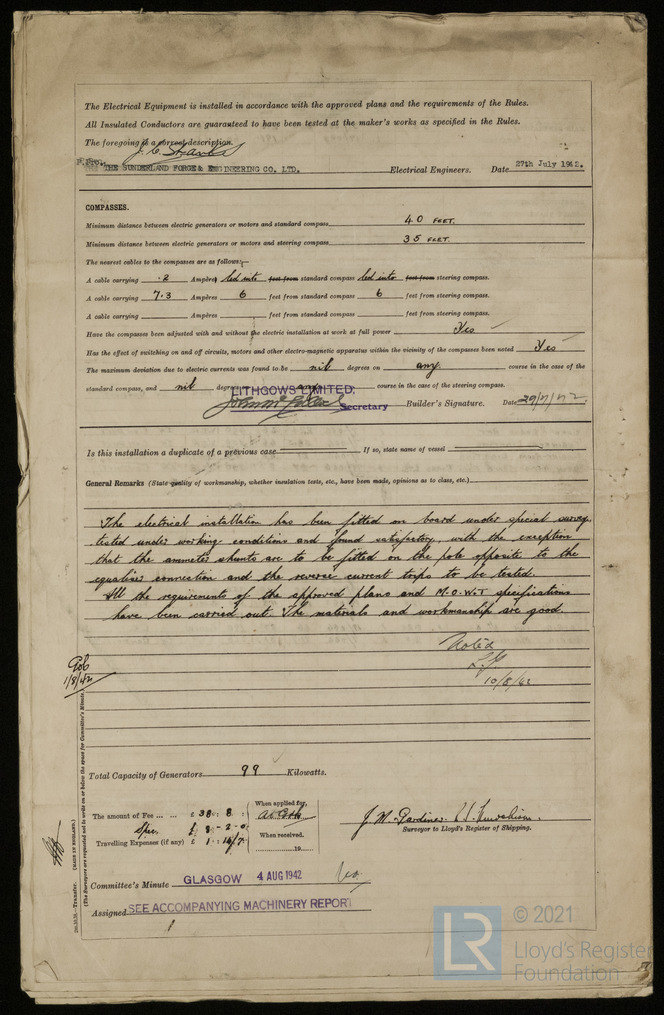 The Electrical Equipment is installed in accordance with the approved plans and the requirements of the Rules.
All Insulated Conductors are guaranteed to have been tested at the maker's works as specified in the Rules.
The foregoing is a correct description.
THE SUNDERLAND FORGE & ENGINEERING CO. LTD. Electrical Engineers. Date 27th July 1942.
COMPASSES.
Minimum distance between electric generators or motors and standard compass 40 FEET.
Minimum distance between electric generators or motors and steering compass 35 FEET.
The nearest cables to the compasses are as follows:—
A cable carrying .2 Ampères led into feet from standard compass led into feet from steering compass.
A cable carrying 7.3 Ampères 6 feet from standard compass 6 feet from steering compass.
A cable carrying Ampères feet from standard compass feet from steering compass.
Have the compasses been adjusted with and without the electric installation at work at full power Yes
Has the effect of switching on and off circuits, motors and other electro-magnetic apparatus within the vicinity of the compasses been noted Yes
The maximum deviation due to electric currents was found to be nil degrees on any course in the case of the
standard compass, and nil degrees on any course in the case of the steering compass.
LITHGOWS LIMITED.
Secretary Builder's Signature. Date 29/7/42.
Is this installation a duplicate of a previous case If so, state name of vessel
General Remarks (State quality of workmanship, whether insulation tests, etc., have been made, opinions as to class, etc.)
The electrical installation has been fitted on board under special survey,
tested under working conditions and found satisfactory, with the exception
that the ammeter shunts are to be fitted on the pole opposite to the
equaliser connection and the reverse current trips to be tested.
All the requirements of the approved plans and M.O.W.T specifications
have been carried out. The materials and workmanship are good.
Noted
10/8/42
1/8/42
Total Capacity of Generators 99 Kilowatts.
The amount of Fee £ 38 : 8 : When applied for,
Spec. £ 8 - 2 - 0
Travelling Expenses (if any) £ 1 : 14/7 : When received,
19
J. M. Gardiner
Surveyor to Lloyd's Register of Shipping.
Committee's Minute GLASGOW 4 AUG 1942
Assigned SEE ACCOMPANYING MACHINERY REPORT
2m.10.36.—Transfer. (MADE IN ENGLAND.)
(The Surveyors are requested not to write on or below the space for Committee's Minute.)
LR © 2021
Lloyd's Register
Foundation